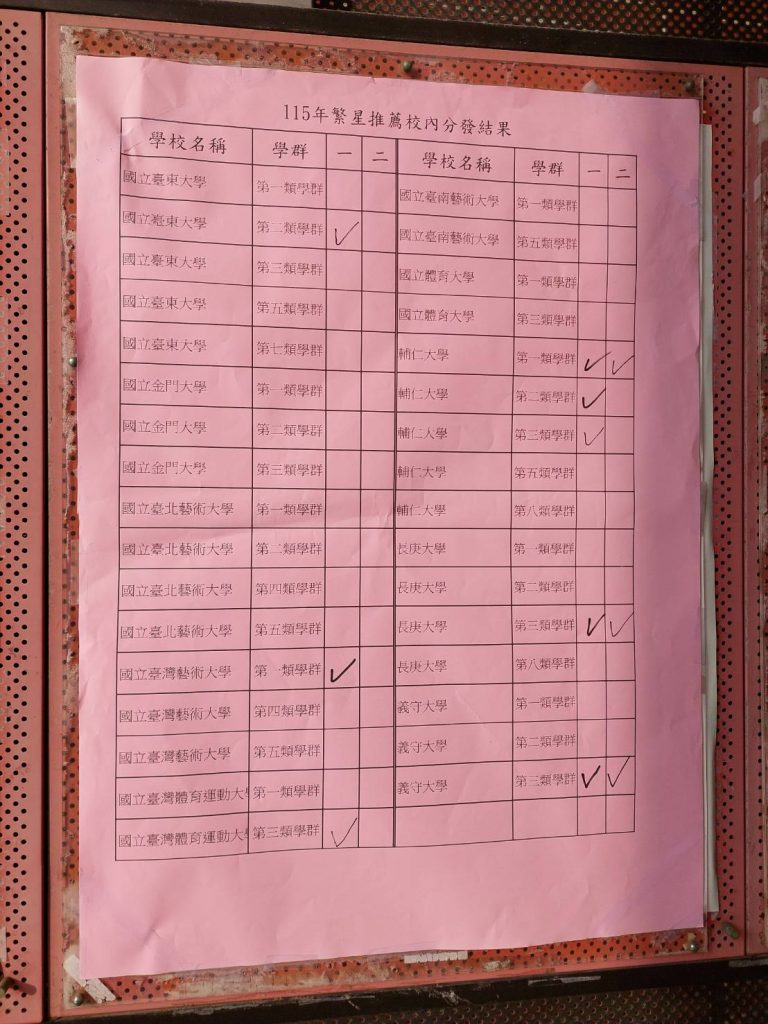 115年繁星推薦校內分發結果
學校名稱 學群 一 二
國立臺東大學 第一類學群
國立臺東大學 第二類學群 ✓
國立臺東大學 第三類學群
國立臺東大學 第五類學群
國立臺東大學 第七類學群
國立金門大學 第一類學群
國立金門大學 第二類學群
國立金門大學 第三類學群
國立臺北藝術大學 第一類學群
國立臺北藝術大學 第二類學群
國立臺北藝術大學 第四類學群
國立臺北藝術大學 第五類學群
國立臺灣藝術大學 第一類學群 ✓
國立臺灣藝術大學 第四類學群
國立臺灣藝術大學 第五類學群
國立臺灣體育運動大 第一類學群
國立臺灣體育運動大 第三類學群 ✓
學校名稱 學群 一 二
國立臺南藝術大學 第一類學群
國立臺南藝術大學 第五類學群
國立體育大學 第一類學群
國立體育大學 第三類學群
輔仁大學 第一類學群 ✓ ✓
輔仁大學 第二類學群 ✓
輔仁大學 第三類學群 ✓
輔仁大學 第五類學群
輔仁大學 第八類學群
長庚大學 第一類學群
長庚大學 第二類學群
長庚大學 第三類學群 ✓ ✓
長庚大學 第八類學群
義守大學 第一類學群
義守大學 第二類學群
義守大學 第三類學群 ✓ ✓